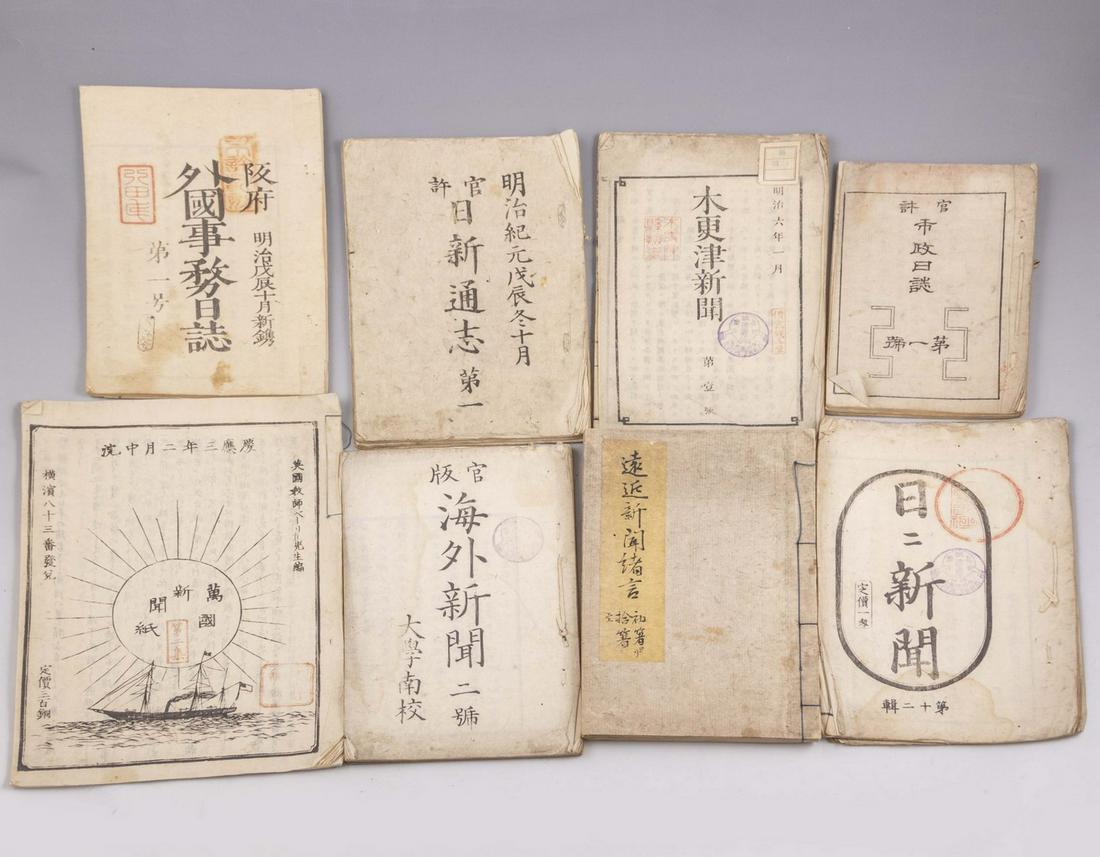 阪府
外國事務日誌
明治戊辰十月新鐫
第一号
明治紀元戊辰冬十月
官許
日新通志 第一
明治六年一月
木更津新聞
第壹號
官許
市政日誌
第一號
慶應三年二月中浣
英國教師ベーリー先生編
萬國
新聞
紙
第二集
横濱八十三番發兌
定價二百銅
官版
海外新聞 二號
大學南校
遠近新聞緒言
初篇ヨリ
拾篇
日二新聞
定價一匁
第十二輯